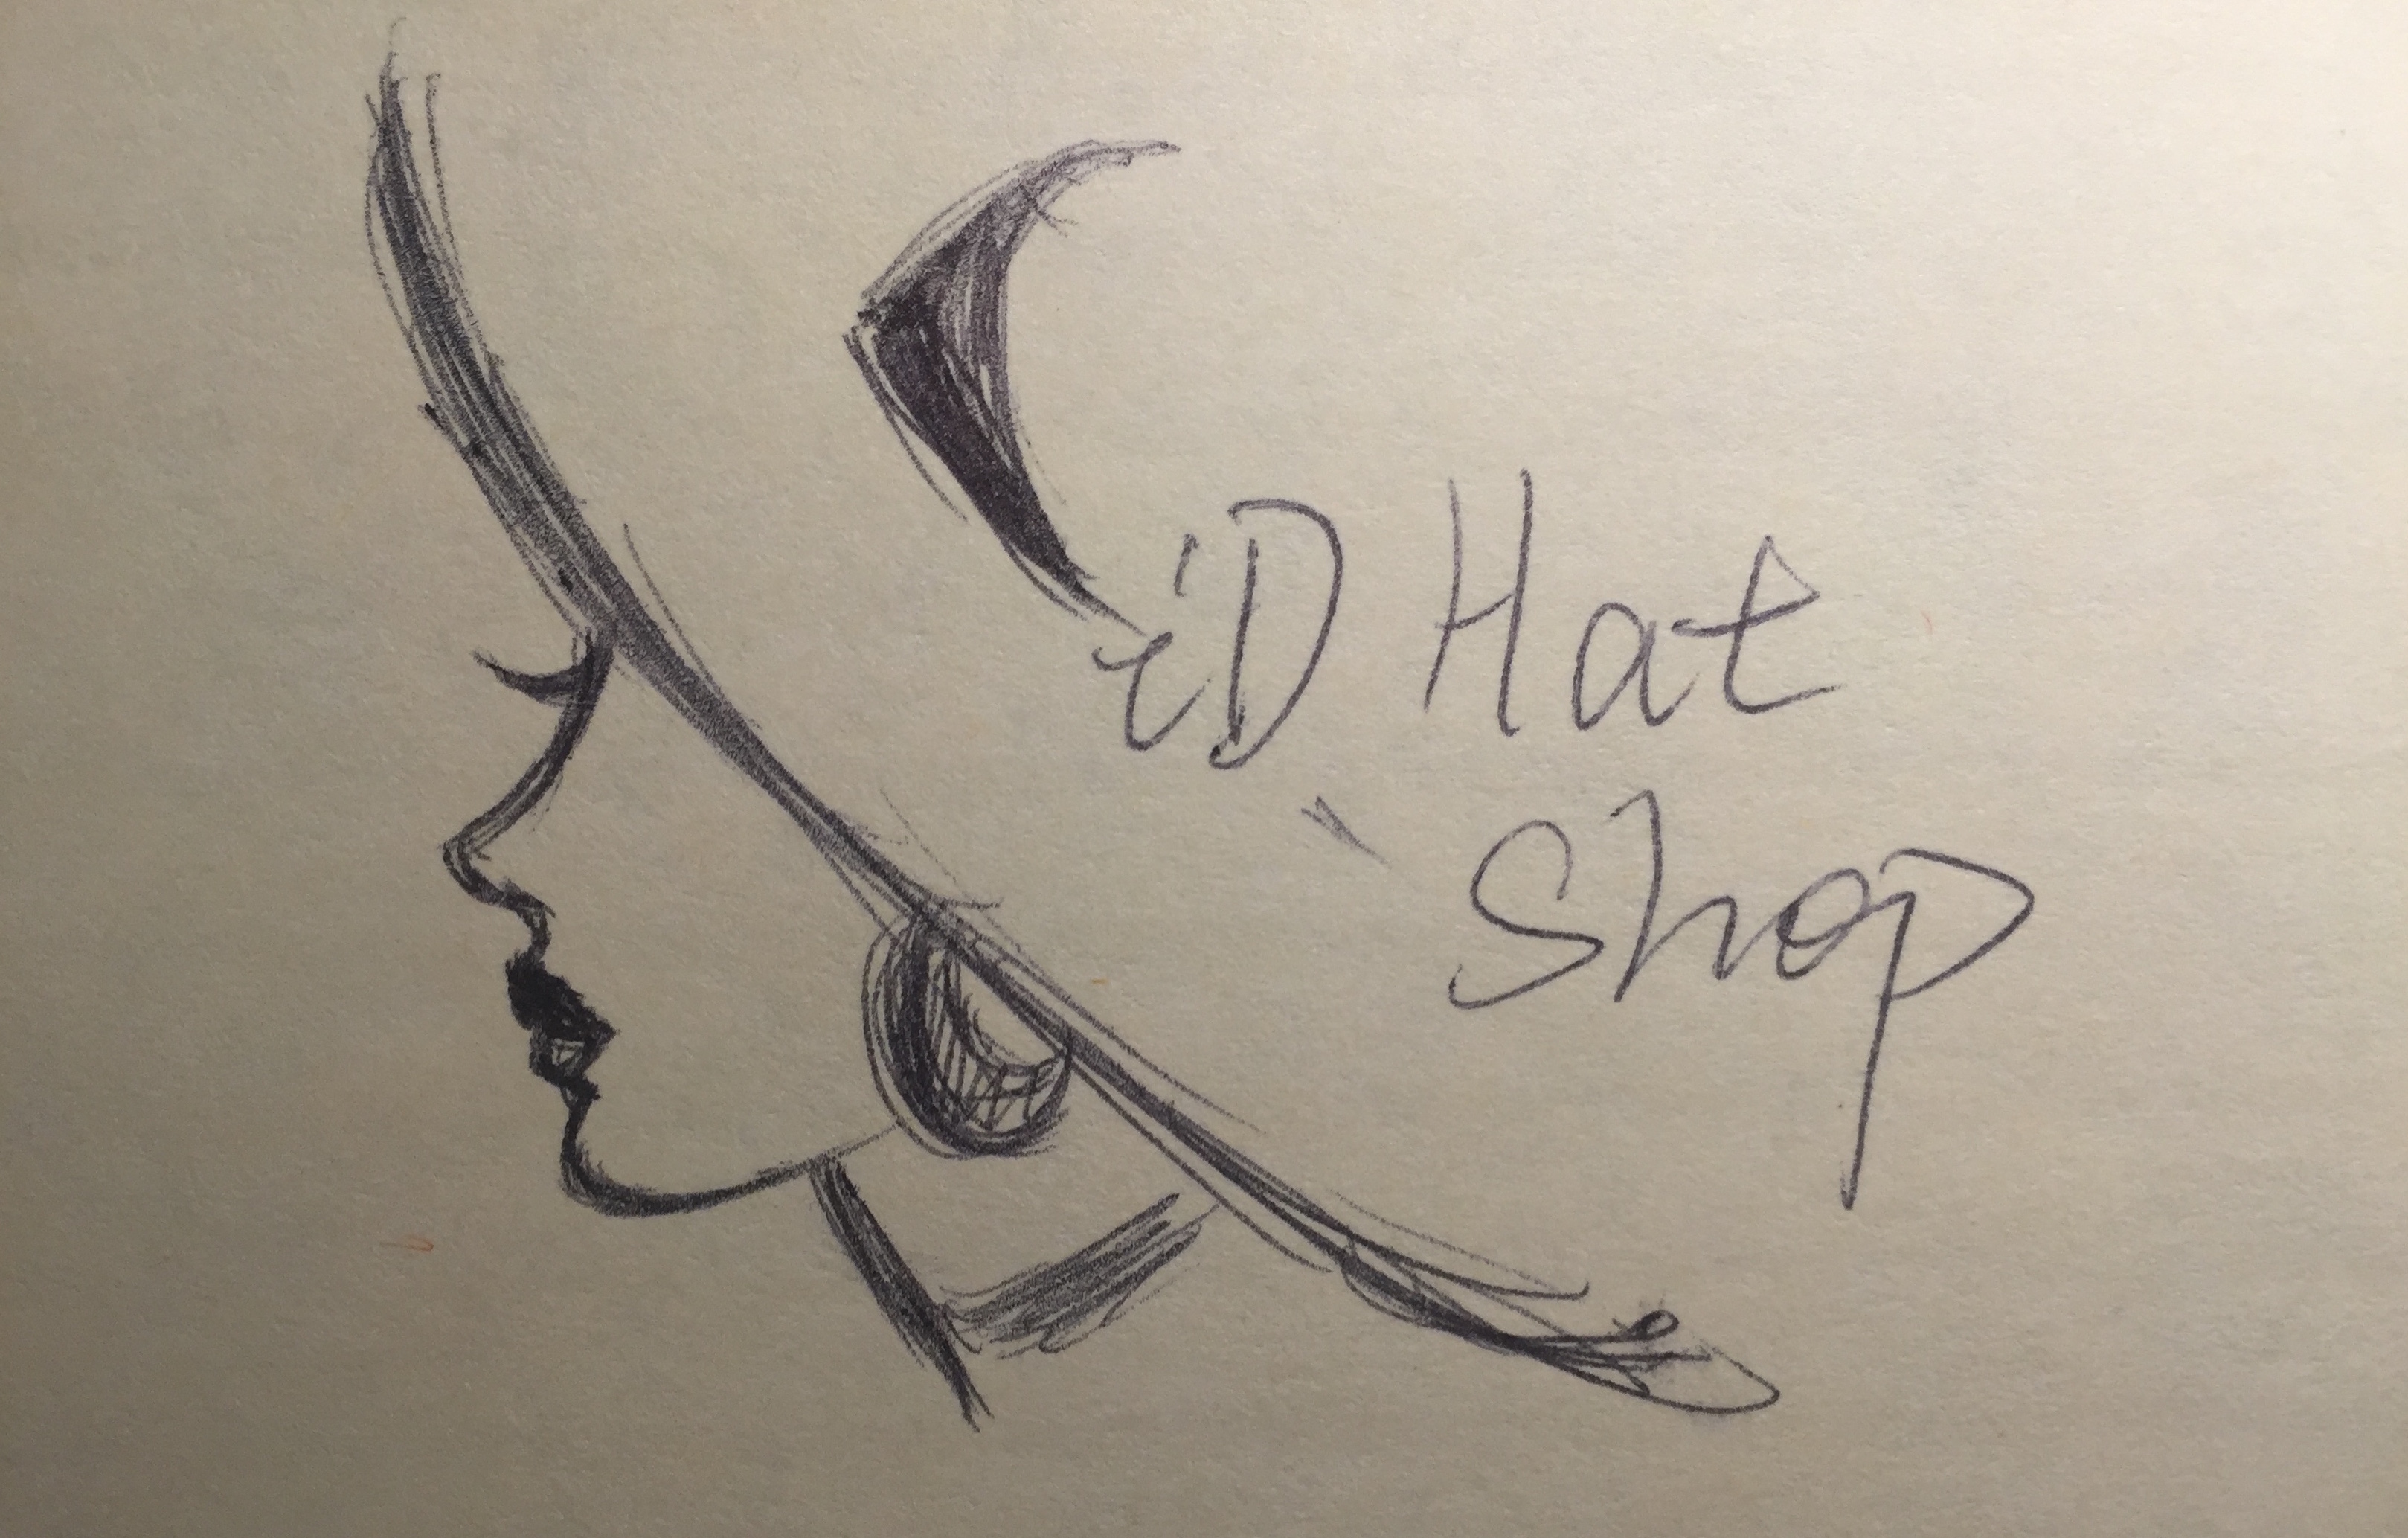 iD Hat
Shop